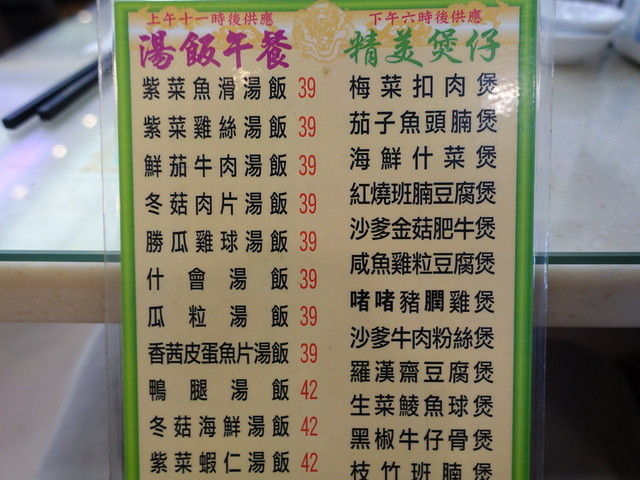 上午十一時後供應
湯飯午餐
紫菜魚滑湯飯 39
紫菜雞絲湯飯 39
鮮茄牛肉湯飯 39
冬菇肉片湯飯 39
勝瓜雞球湯飯 39
什會湯飯 39
瓜粒湯飯 39
香茜皮蛋魚片湯飯 39
鴨腿湯飯 42
冬菇海鮮湯飯 42
紫菜蝦仁湯飯 42
下午六時後供應
精美煲仔
梅菜扣肉煲
茄子魚頭腩煲
海鮮什菜煲
紅燒班腩豆腐煲
沙爹金菇肥牛煲
咸魚雞粒豆腐煲
啫啫豬膶雞煲
沙爹牛肉粉絲煲
羅漢齋豆腐煲
生菜鯪魚球煲
黑椒牛仔骨煲
枝竹班腩煲